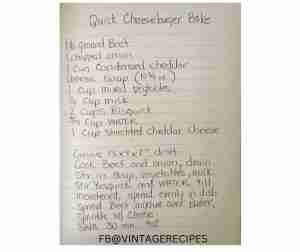 Quick Cheeseburger Bake
1 lb ground Beef
chopped onion
1 can Condensed cheddar
cheese soup (10¾ oz.)
1 cup mixed vegetables
milk
2 cups Bisquick
¾ cup water
1 cup shredded cheddar cheese
Grease dish
Cook Beef and onion, drain
Stir in soup, vegetables, milk
Stir Bisquick and water till
moistened, spread evenly in dish
spread Beef mixture over batter,
Sprinkle w/ cheese
Bake 30 min
FB@VINTAGERECIPES